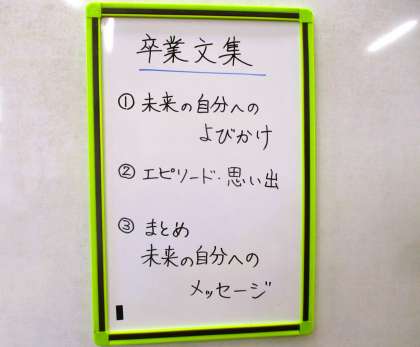 卒業文集
① 未来の自分への
よびかけ
② エピソード・思い出
③ まとめ
未来の自分への
メッセージ